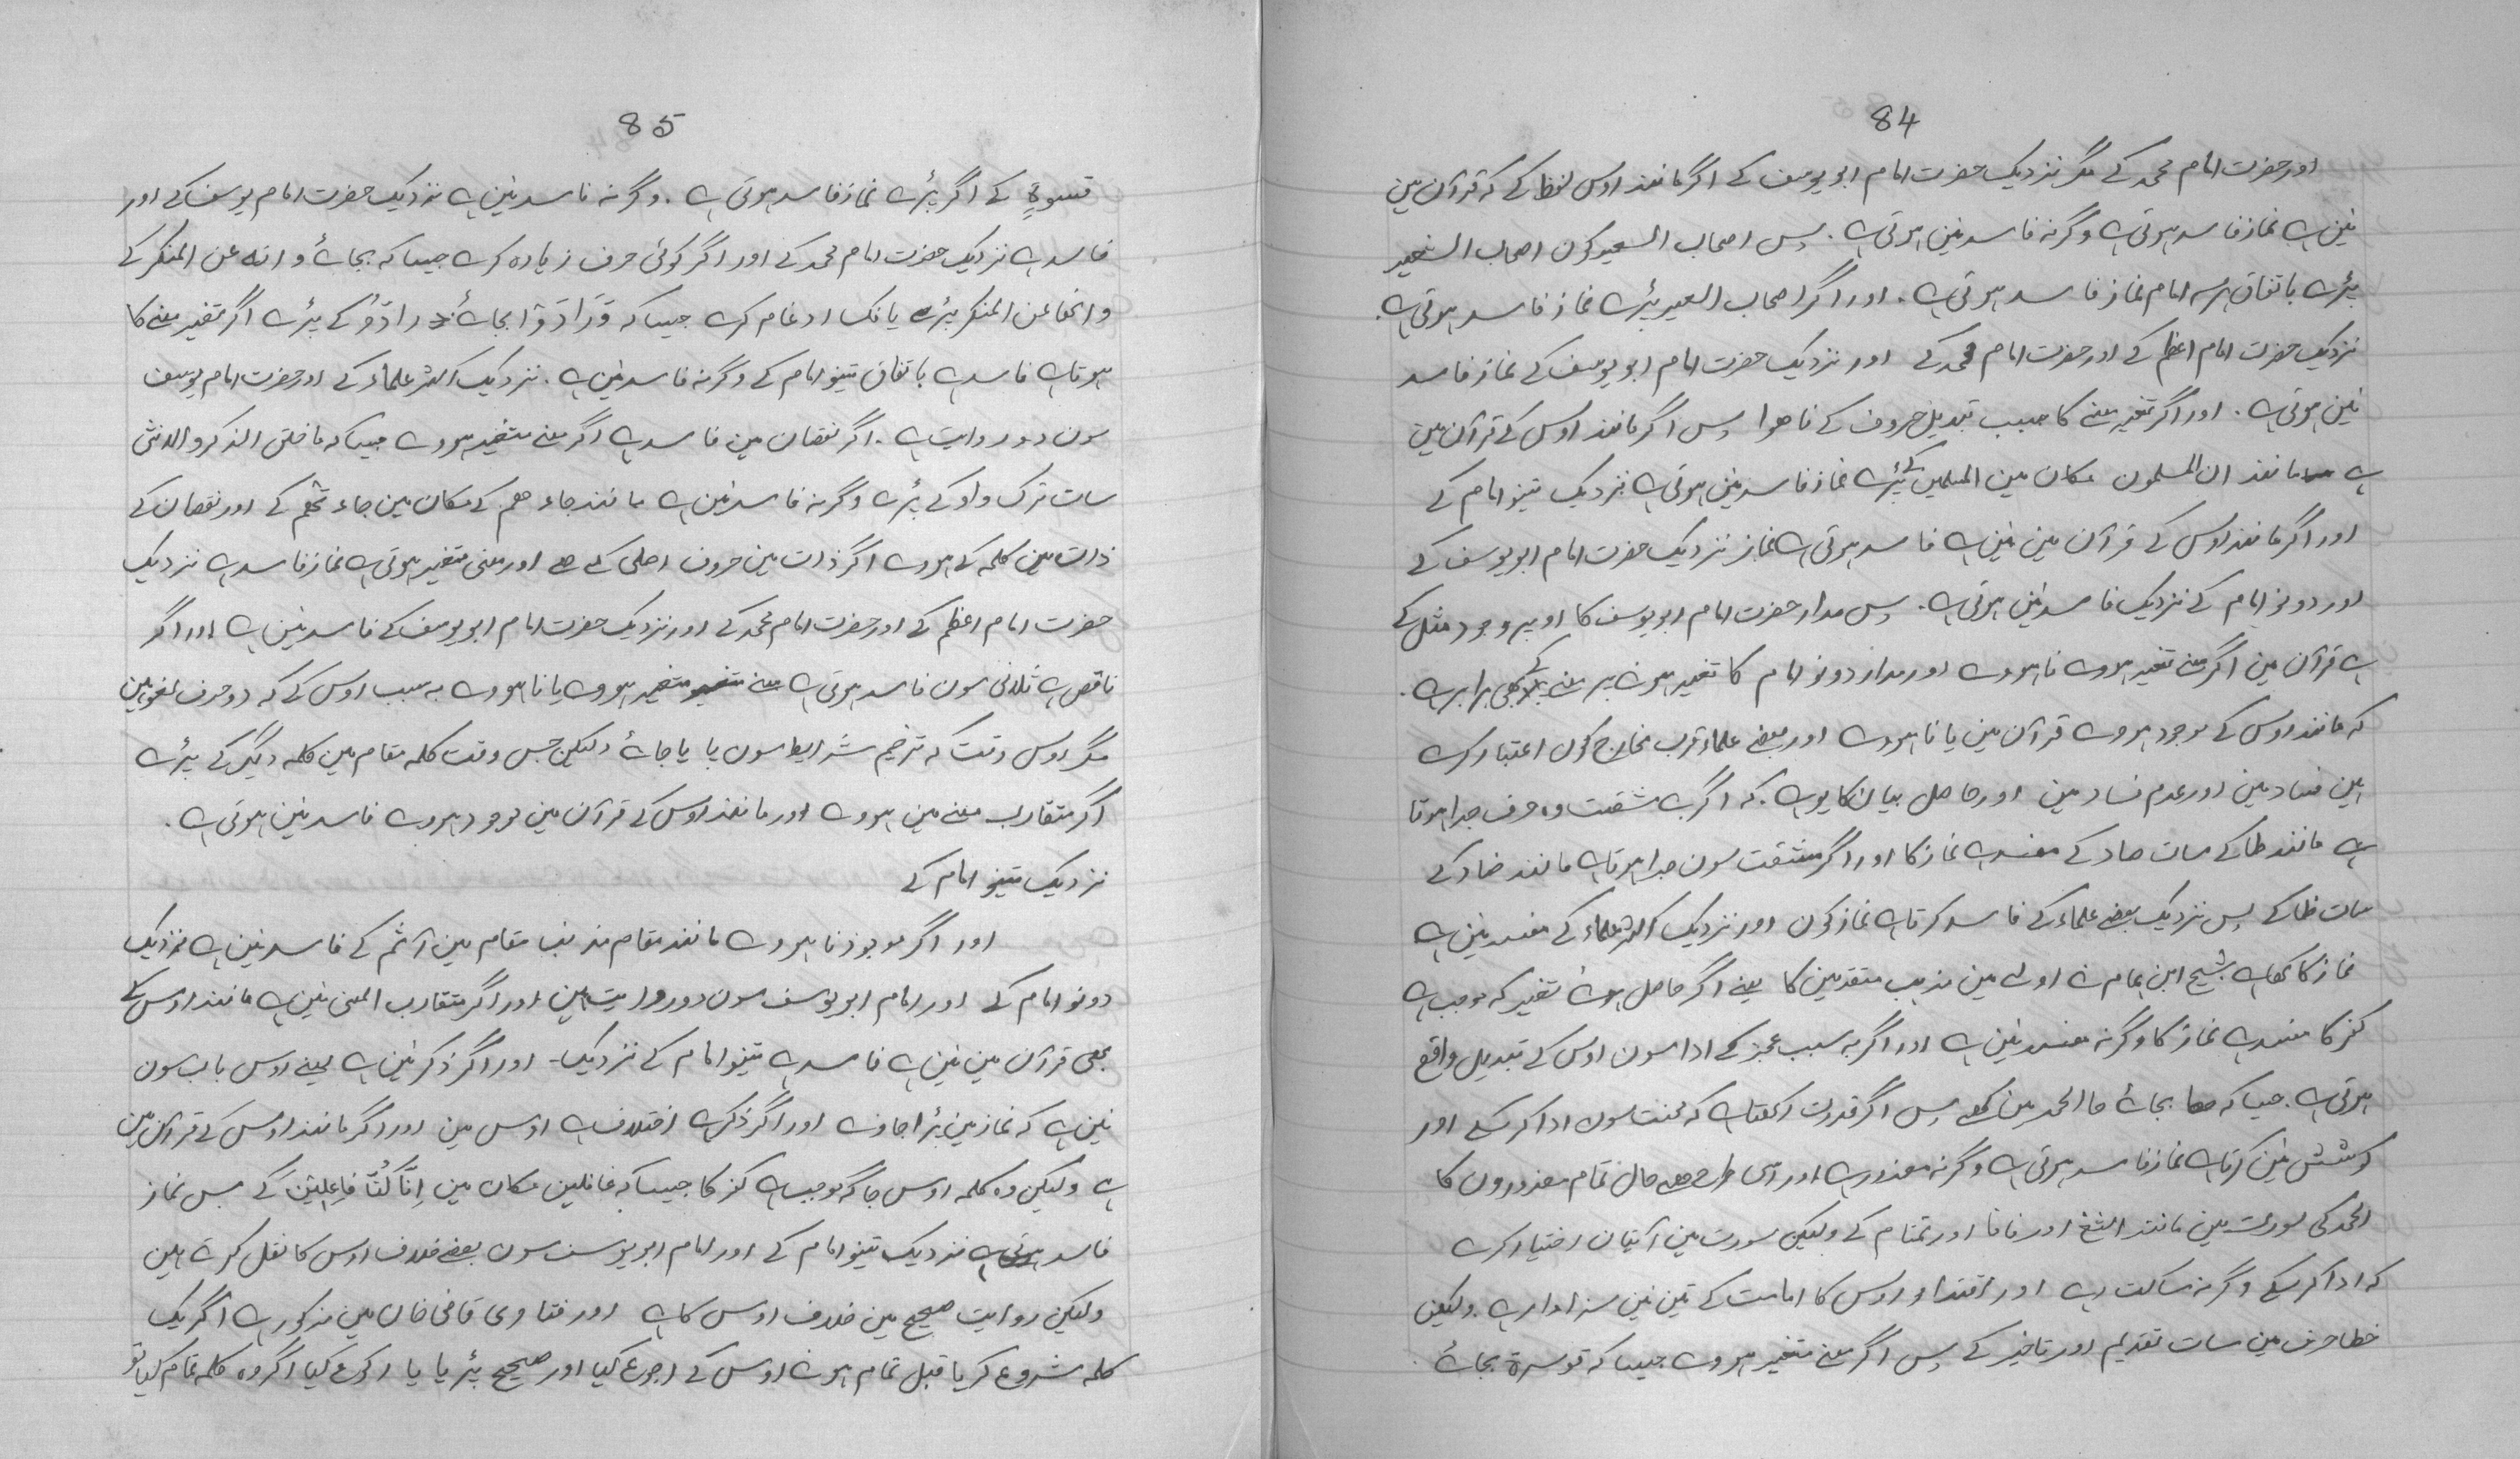 84
اور حضرت امام محمد کے مگر نزدیک حضرت امام ابو یوسف کے اگر مانند اوس لفظ کے کہ قرآن مین
نین ہے نماز فاسد ہوتی ہے وگرنہ فاسد نین ہوتی ہے۔ پس اصحاب السعیر کون اصحاب الشعیر
پڑے باتفاق ہر سہ امام نماز فاسد ہوتی ہے۔ اور اگر اصحاب العیر پڑے نماز فاسد ہوتی ہے۔
نزدیک حضرت امام اعظم کے اور حضرت امام محمد کے اور نزدیک حضرت امام ابو یوسف کے نماز فاسد
نین ہوتی ہے۔ اور اگر تغیر معنے کا سبب تبدیل حروف کے نا ہوا پس اگر مانند اوس کے قرآن مین
ہے مانند ان المسلمون مکان مین المسلمین کے پڑے نماز فاسد نین ہوتی ہے نزدیک تینو امام کے
اور اگر مانند اوس کے قرآن مین نین ہے فاسد ہوتی ہے نماز نزدیک حضرت امام ابو یوسف کے
اور دونو امام کے نزدیک فاسد نین ہوتی ہے۔ پس مدار حضرت امام ابو یوسف کا اوپر وجود مثل کے
ہے قرآن مین اگر معنے تغیر ہووے نا ہووے اور مدار دونو امام کا تغیر ہونے پر معنے کے بھی برابر ہے۔
کہ مانند اوس کے موجود ہووے قرآن مین یا نا ہووے اور بعضے علماء قرب مخارج کون اعتبار کرے
ہین فساد مین اور عدم فساد مین اور حاصل بیان کا یو ہے۔ کہ اگر بے مشقت وہ حرف جدا ہوتا
ہے مانند طا کے سات صاد کے مفسد ہے نماز کا اور اگر مشقت سون جدا ہوتا ہے مانند ضاد کے
سات ظا کے پس نزدیک بعضے علماء کے فاسد کرتا ہے نماز کون اور نزدیک اکثر علماء کے مفسد نین ہے
نماز کا کھا ہے شیخ ابن ہمام نے اولے مین مذہب متقدمین کا یعنے اگر حاصل ہوے تغیر کہ موجب ہے
کفر کا مفسد ہے نماز کا وگرنہ مفسد نین ہے اور اگر بہ سبب عجز کے ادا سون اوس کے تبدیل واقع
ہوتی ہے۔ جیسا کہ ھا بجائے حا الحمد مین کھے پس اگر قدرت رکھتا ہے کہ محنت سون ادا کر سکے اور
کوشش نین کرتا ہے نماز فاسد ہوتی ہے وگرنہ معذور ہے اور اسی طرح ہے حال تمام معذورون کا
الحمد کی سورت مین مانند الثغ اور فافا اور تمتام کے ولیکن سورت مین آتیان اختیار کرے
کہ ادا کر سکے وگرنہ ساکت رہے اور اقتدا اوس کا امامت کے تین نین سزاوار ہے۔ ولیکن
خطا حرف مین سات تقدیم اور تاخیر کے پس اگر معنے متغیر ہووے جیسا کہ قوسرۃ بجائے
85
قسوۃ کے اگر پڑے نماز فاسد ہوتی ہے۔ وگرنہ فاسد نین ہے نزدیک حضرت امام یوسف کے اور
فاسد ہے نزدیک حضرت امام محمد کے اور اگر کوئی حرف زیادہ کرے جیسا کہ بجائے وانہ عن المنکر کے
وانھا عن المنکر پڑے یا فک ادغام کرے جیسا کہ بجائے رادو کے پڑے اگر تغیر معنے کا
ہوتا ہے فاسد ہے باتفاق تینو امام کے وگرنہ فاسد نین ہے۔ نزدیک اکثر علماء کے اور حضرت امام یوسف
سون دو روایت ہے۔ اگر نقصان مین فاسد ہے اگر معنے متغیر ہووے جیسا کہ ما خلق الذکر والانثی
سات ترک واو کے پڑے وگرنہ فاسد نین ہے مانند جاء ھم کے مکان مین جاء تھم کے اور نقصان کے
ذات مین کلمہ کے ہووے اگر ذات مین حروف اصلی کے ہے اور معنی متغیر ہوتی ہے نماز فاسد ہے نزدیک
حضرت امام اعظم کے اور حضرت امام محمد کے اور نزدیک حضرت امام ابو یوسف کے فاسد نین ہے اور اگر
ناقص ہے ثلاثی سون فاسد ہوتی ہے معنے متغیر ہووے یا نا ہووے بہ سبب اوس کے کہ دو حرف لغو ہین
مگر اوس وقت کہ ترخیم شرایط سون پایا جائے ولیکن جس وقت کلمہ مقام مین کلمہ دیگر کے پڑے
اگر متقارب معنے مین ہووے اور مانند اوس کے قرآن مین موجود ہووے فاسد نین ہوتی ہے۔
نزدیک تینو امام کے
اور اگر موجود نا ہووے مانند مقام مذنب مقام مین آثم کے فاسد نین ہے نزدیک
دونو امام کے اور امام ابو یوسف سون دو روایت ہین اور اگر متقارب المعنی نین ہے مانند اوس کے
بھی قرآن مین نین ہے فاسد ہے تینو امام کے نزدیک۔ اور اگر ذکر نین ہے یعنے اوس باب سون
نین ہے کہ نماز مین پڑا جاوے اور اگر ذکر ہے اختلاف ہے اوس مین اور اگر مانند اوس کے قرآن مین
ہے ولیکن وہ کلمہ اوس جاگہ موجب ہے کفر کا جیسا کہ غافلین مکان مین اِنَّا کُنَّا فاعِلِین کے پس نماز
فاسد ہوتی ہے نزدیک تینو امام کے اور امام ابو یوسف سون بعضے خلاف اوس کا نقل کرتے ہین
ولیکن روایت صحیح مین خلاف اوس کا ہے اور فتاوی قاضی خان مین مذکور ہے اگر یک
کلمہ شروع کریا قبل تمام ہونے اوس کے رجوع کیا اور صحیح پڑیا یا رکوع کیا اگر وہ کلمہ تمام کیا تو